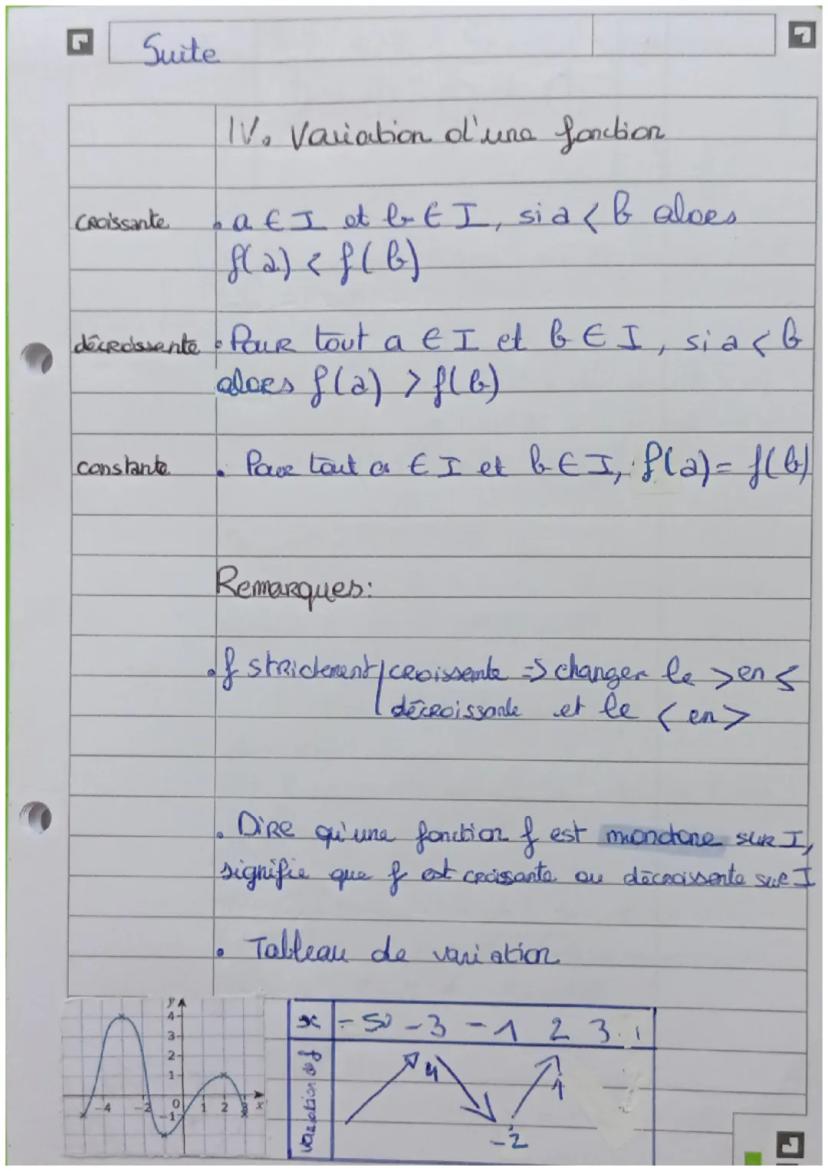 Suite
IV. Variation d'une fonction
croissante . a ∈ I et b ∈ I, si a < b alors
f(a) < f(b)
décroissante . Pour tout a ∈ I et b ∈ I, si a < b
alors f(a) > f(b)
constante . Pour tout a ∈ I et b ∈ I, f(a) = f(b)
Remarques:
. f strictement croissente => changer le > en ≤
décroissante et le < en >
. Dire qu'une fonction f est monotone sur I,
signifie que f est croissante ou décroissente sur I
. Tableau de variation
y
4
3
2
1
-4 -2 0 1 2 3 x
-1
x -3 -1 2 3
variation de f
4
1
-2